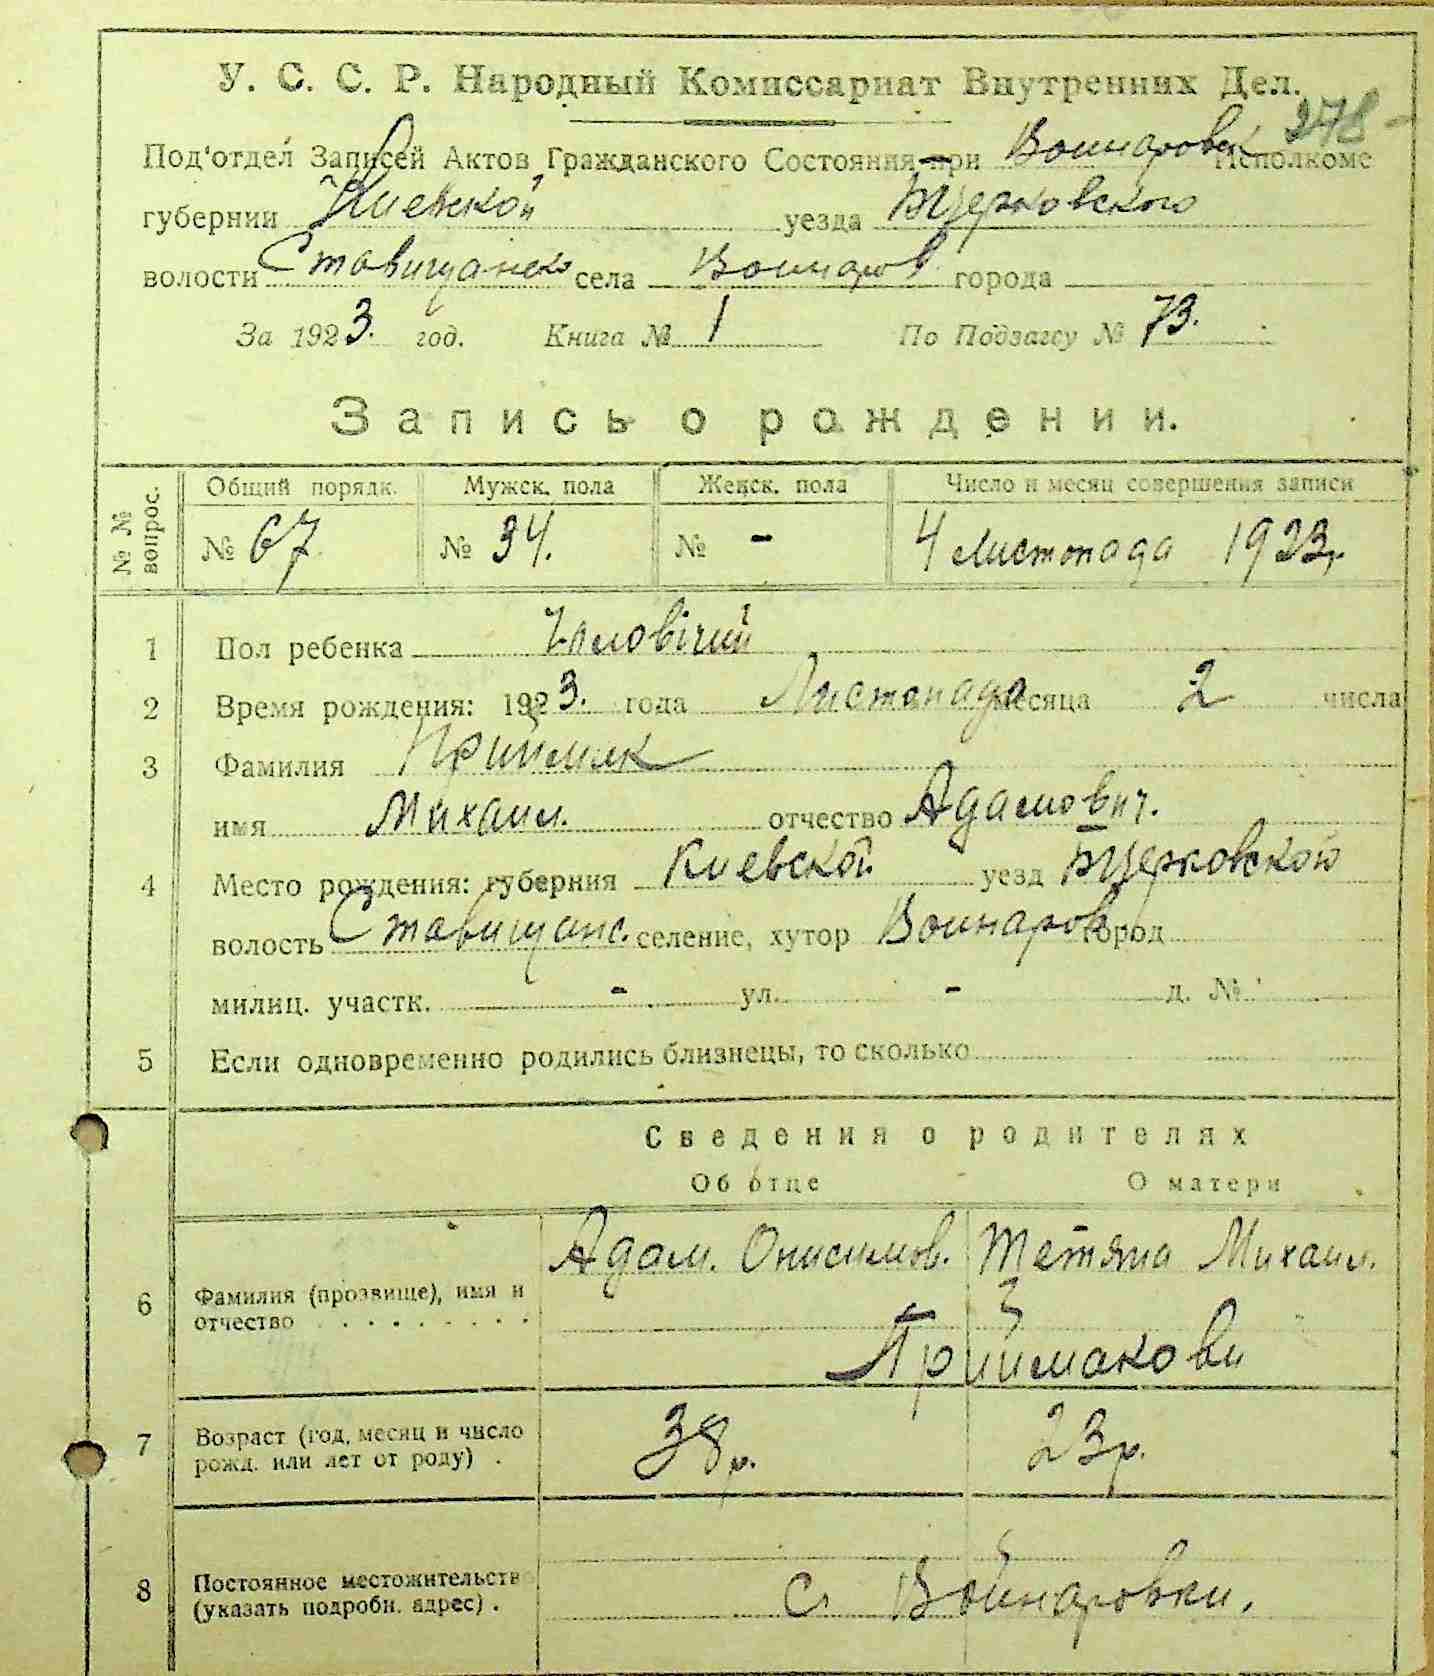 У. С. С. Р. Народный Комиссариат Внутренних Дел.
278
Под'отдел Записей Актов Гражданского Состояния при Воинаровск Исполкоме
губернии Киевской уезда Бцерковского
волости Ставищанско села Воинаров города
За 1923. год. Книга № 1 По Подзагсу № 73.
Запись о рождении.
№ № вопрос. Общий порядк. Мужск. пола Женск. пола Число и месяц совершения записи
№ 67 № 34. № - 4 Листопада 1923р.
1 Пол ребенка Чоловічий
2 Время рождения: 1923. года Листопада месяца 2 числа
3 Фамилия Приймак
имя Михаил. отчество Адамович.
4 Место рождения: губерния Киевской уезд Бцерковской
волость Ставищанс. селение, хутор Воинаров город
милиц. участк. - ул. - д. №
5 Если одновременно родились близнецы, то сколько
Сведения о родителях
Об отце О матери
6 Фамилия (прозвище), имя и отчество Адам. Онисимов. Тетяна Михаил.
Приймакови
7 Возраст (год, месяц и число рожд. или лет от роду) . 38р. 23р.
8 Постоянное местожительств (указать подробн. адрес) . с. Войнаровки.